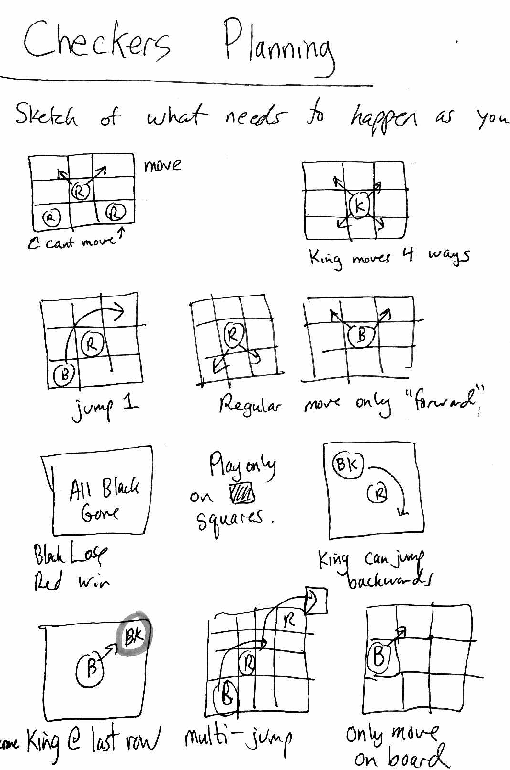 Checkers Planning
Sketch of what needs to happen as you
move
R
R
R
can't move
K
King moves 4 ways
R
B
jump 1
R
B
Regular move only "forward"
All Black
Gone
Black Lose
Red win
Play only
on
squares.
BK
R
King can jump
backwards
B
BK
King @ last row
R
R
B
multi-jump
B
only move
on board